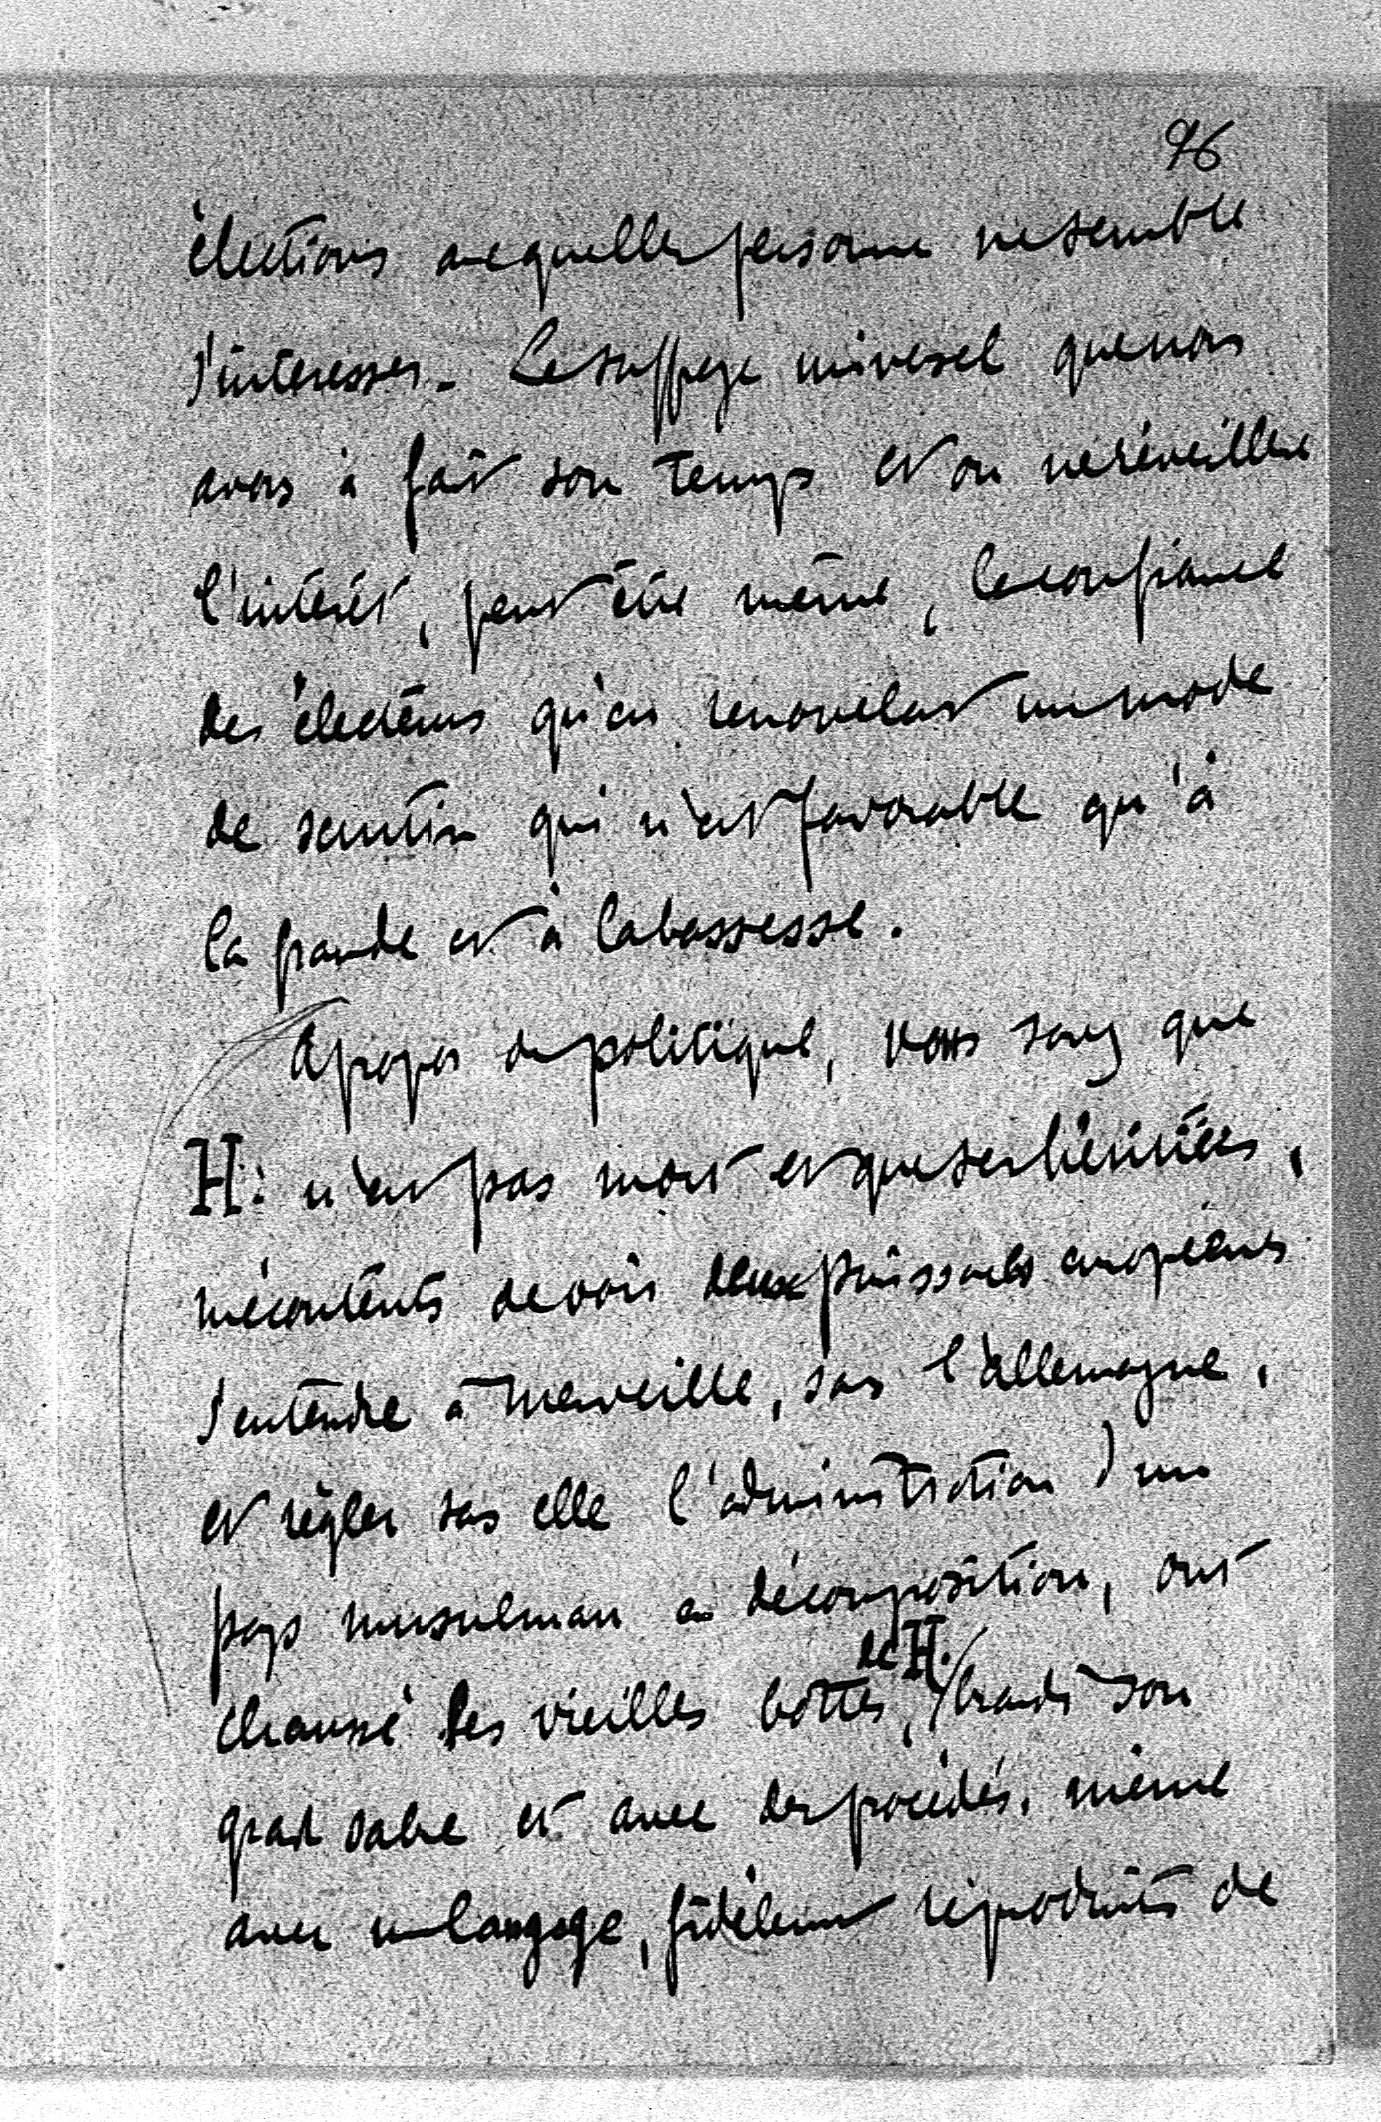 96
élections auxquelles personne ne semble
s'intéresser. Le suffrage universel que nous
avons a fait son temps et on ne réveillera
l'intérêt, peut être même, la confiance
des électeurs qu'en renouvelant un mode
de scrutin qui n'est favorable qu'à
la fraude et à la bassesse.
A propos de politique, vous savez que
H. n'est pas mort et que ses héritiers,
mécontents de voir deux puissances européennes
s'entendre à merveille, sans l'Allemagne,
et régler sans elle l'administration d'un
pays musulman en décomposition, ont
de H.
chaussé les vieilles bottes, brandi son
grand sabre et avec des procédés, même
avec un langage, fidèlement reproduits de